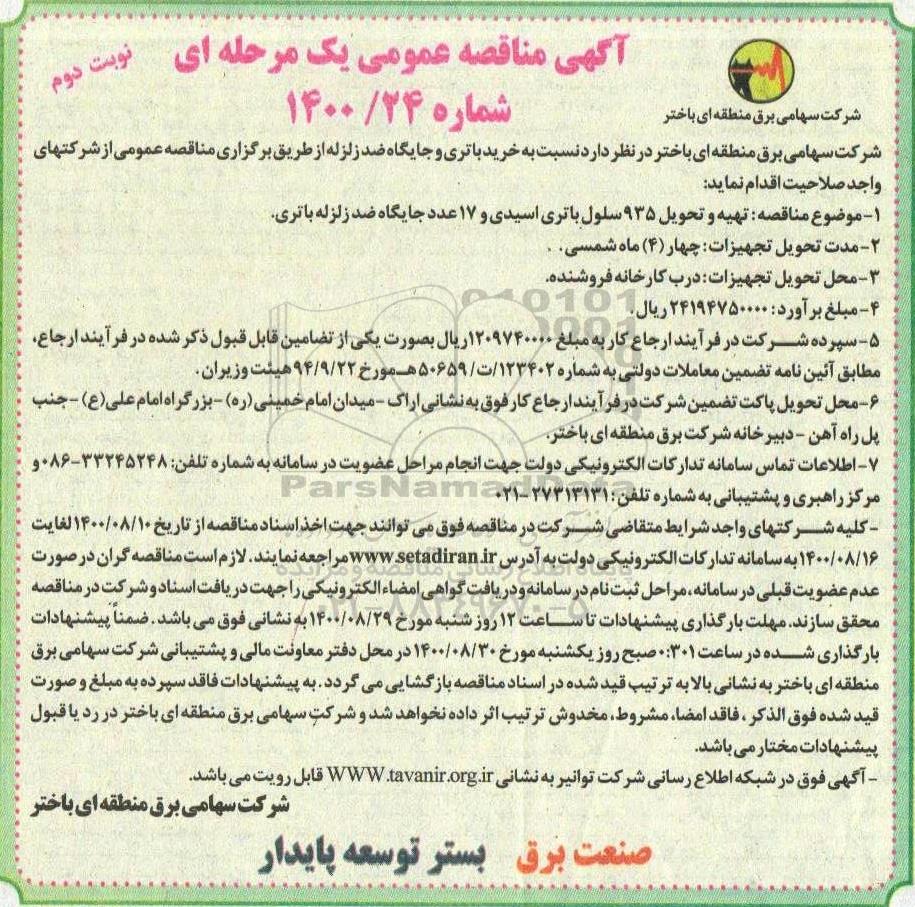 آگهی مناقصه عمومی یک مرحله ای
نوبت دوم
شماره ۲۴/ ۱۴۰۰
شرکت سهامی برق منطقه ای باختر
شرکت سهامی برق منطقه ای باختر در نظر دارد نسبت به خرید باتری و جایگاه ضد زلزله از طریق برگزاری مناقصه عمومی از شرکتهای
واجد صلاحیت اقدام نماید:
۱-موضوع مناقصه: تهیه و تحویل ۹۳۵ سلول باتری اسیدی و ۱۷ عدد جایگاه ضد زلزله باتری.
۲-مدت تحویل تجهیزات: چهار (۴) ماه شمسی.
۳-محل تحویل تجهیزات: درب کارخانه فروشنده.
۴-مبلغ برآورد: ۲۴۱۹۴۷۵۰۰۰۰ ریال.
۵-سپرده شرکت در فرآیند ارجاع کار به مبلغ ۱۲۰۹۷۴۰۰۰۰ ریال بصورت یکی از تضامین قابل قبول ذکر شده در فرآیند ارجاع،
مطابق آئین نامه تضمین معاملات دولتی به شماره ۱۲۳۴۰۲/ت/۵۰۶۵۹ هـ مورخ ۹۴/۹/۲۲ هیئت وزیران.
۶-محل تحویل پاکت تضمین شرکت در فرآیند ارجاع کار فوق به نشانی اراک -میدان امام خمینی (ره) -بزرگراه امام علی(ع) -جنب
پل راه آهن -دبیرخانه شرکت برق منطقه ای باختر.
۷-اطلاعات تماس سامانه تدارکات الکترونیکی دولت جهت انجام مراحل عضویت در سامانه به شماره تلفن: ۳۳۲۴۵۲۴۸-۰۸۶ و
مرکز راهبری و پشتیبانی به شماره تلفن: ۲۷۳۱۳۱۳۱-۰۲۱
-کلیه شرکتهای واجد شرایط متقاضی شرکت در مناقصه فوق می توانند جهت اخذ اسناد مناقصه از تاریخ ۱۴۰۰/۰۸/۱۰ لغایت
۱۴۰۰/۰۸/۱۶ به سامانه تدارکات الکترونیکی دولت به آدرس www.setadiran.ir مراجعه نمایند. لازم است مناقصه گران در صورت
عدم عضویت قبلی در سامانه، مراحل ثبت نام در سامانه و دریافت گواهی امضاء الکترونیکی را جهت دریافت اسناد و شرکت در مناقصه
محقق سازند. مهلت بارگذاری پیشنهادات تا ساعت ۱۲ روز شنبه مورخ ۱۴۰۰/۰۸/۲۹ به نشانی فوق می باشد. ضمناً پیشنهادات
بارگذاری شده در ساعت ۰:۳۰۱ صبح روز یکشنبه مورخ ۱۴۰۰/۰۸/۳۰ در محل دفتر معاونت مالی و پشتیبانی شرکت سهامی برق
منطقه ای باختر به نشانی بالا به ترتیب قید شده در اسناد مناقصه بازگشایی می گردد. به پیشنهادات فاقد سپرده به مبلغ و صورت
قید شده فوق الذکر، فاقد امضا، مشروط، مخدوش ترتیب اثر داده نخواهد شد و شرکت سهامی برق منطقه ای باختر در رد یا قبول
پیشنهادات مختار می باشد.
-آگهی فوق در شبکه اطلاع رسانی شرکت توانیر به نشانی WWW.tavanir.org.ir قابل رویت می باشد.
شرکت سهامی برق منطقه ای باختر
صنعت برق بستر توسعه پایدار
ParsNamadData